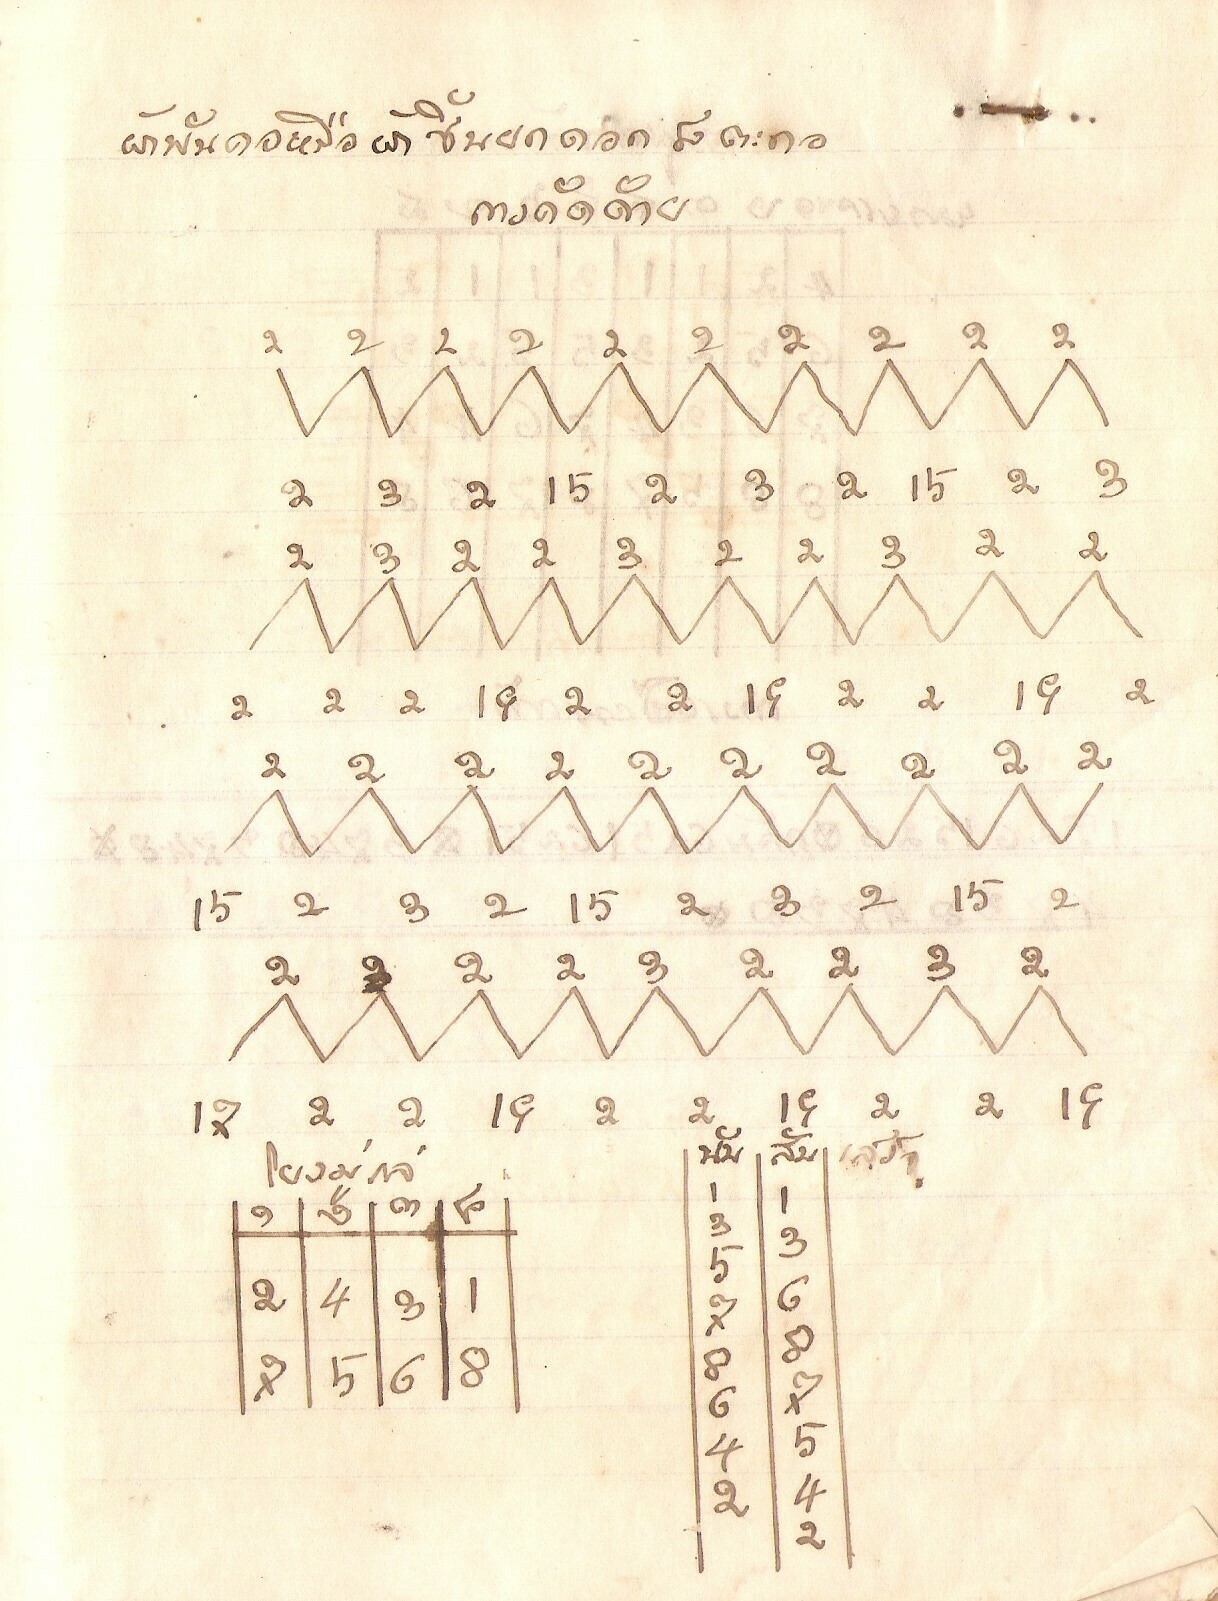 ผ้าพันคอหรือผ้าซิ่นยกดอก ๘ ตะกอ
การคัดด้าย
2 2 2 2 2 2 2 2 2 2
2 3 2 15 2 3 2 15 2 3
2 3 2 2 3 2 2 3 2 2
2 2 2 19 2 2 19 2 2 19 2
2 2 2 2 2 2 2 2 2 2
15 2 3 2 15 2 3 2 15 2
2 2 2 2 3 2 2 3 2
17 2 2 19 2 2 19 2 2 19
โยงม่กล่
๑ ๒ ๓ ๔
2 4 3 1
7 5 6 8
นับ สับ
1 1
3 3
5 6
7 8
8 7
6 5
4 4
2 2